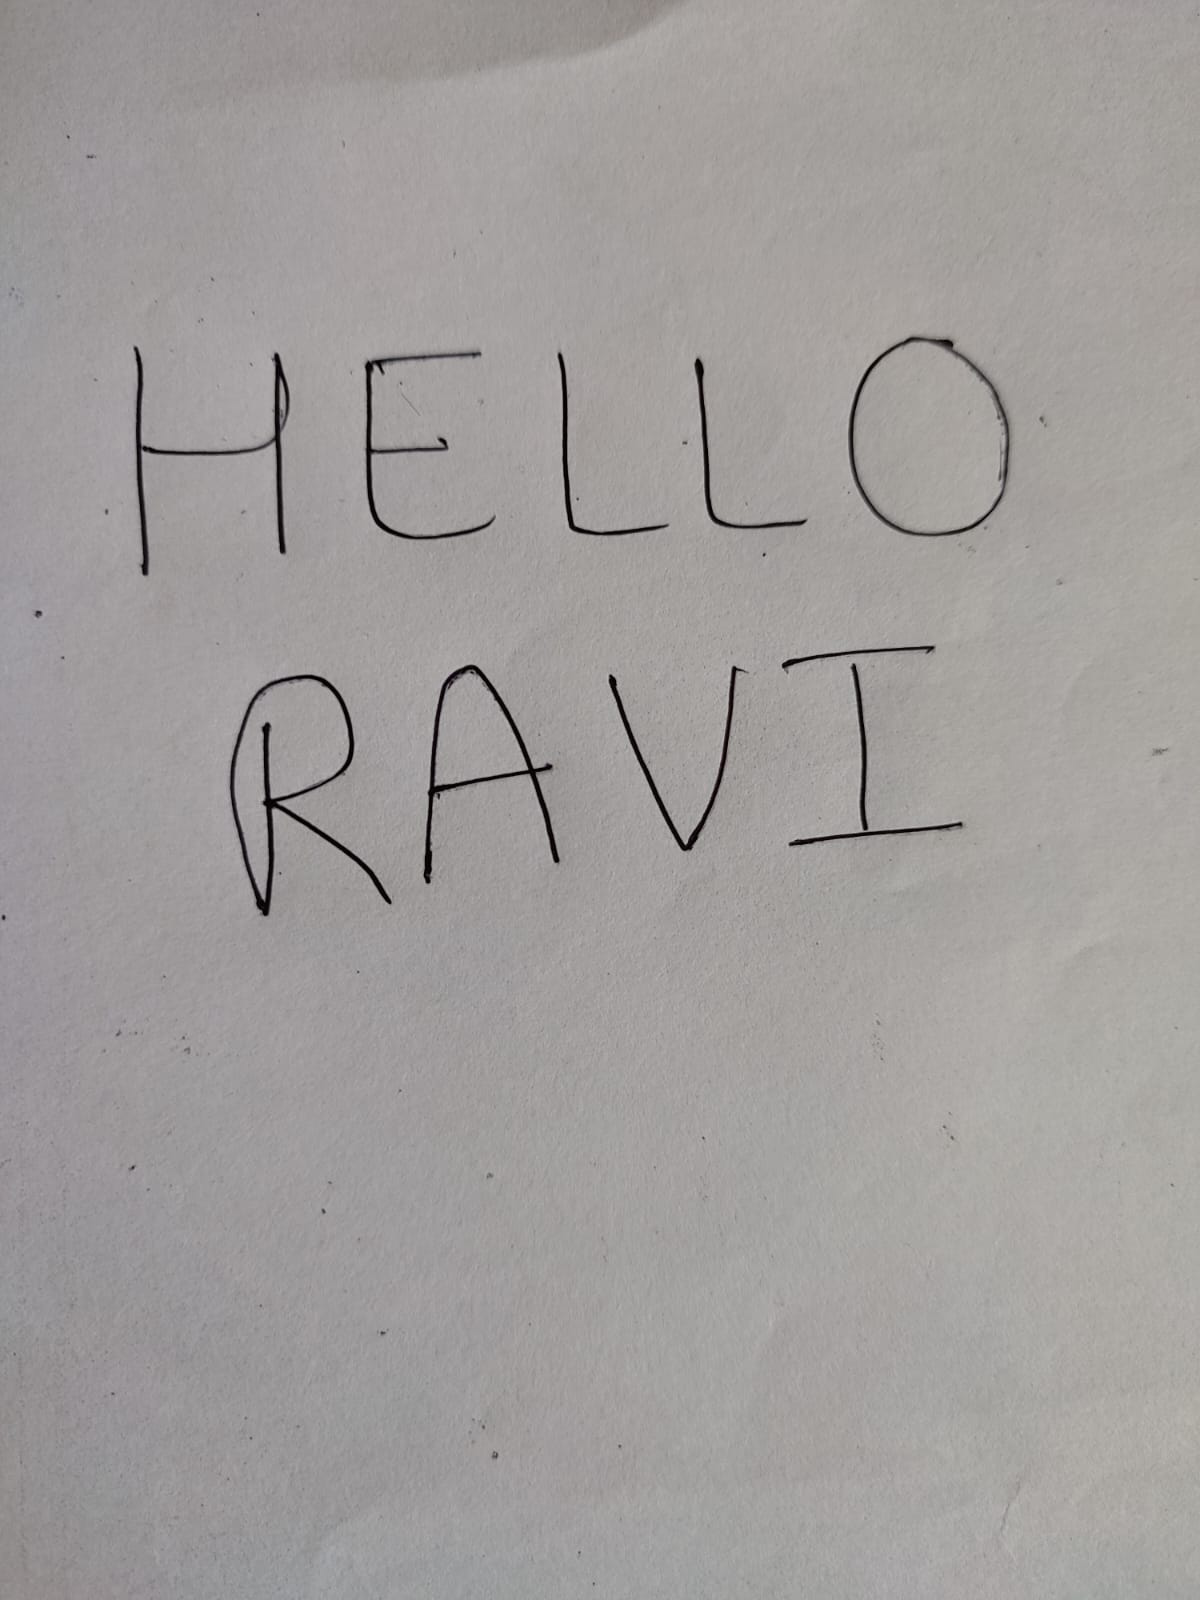 HELLO
RAVI